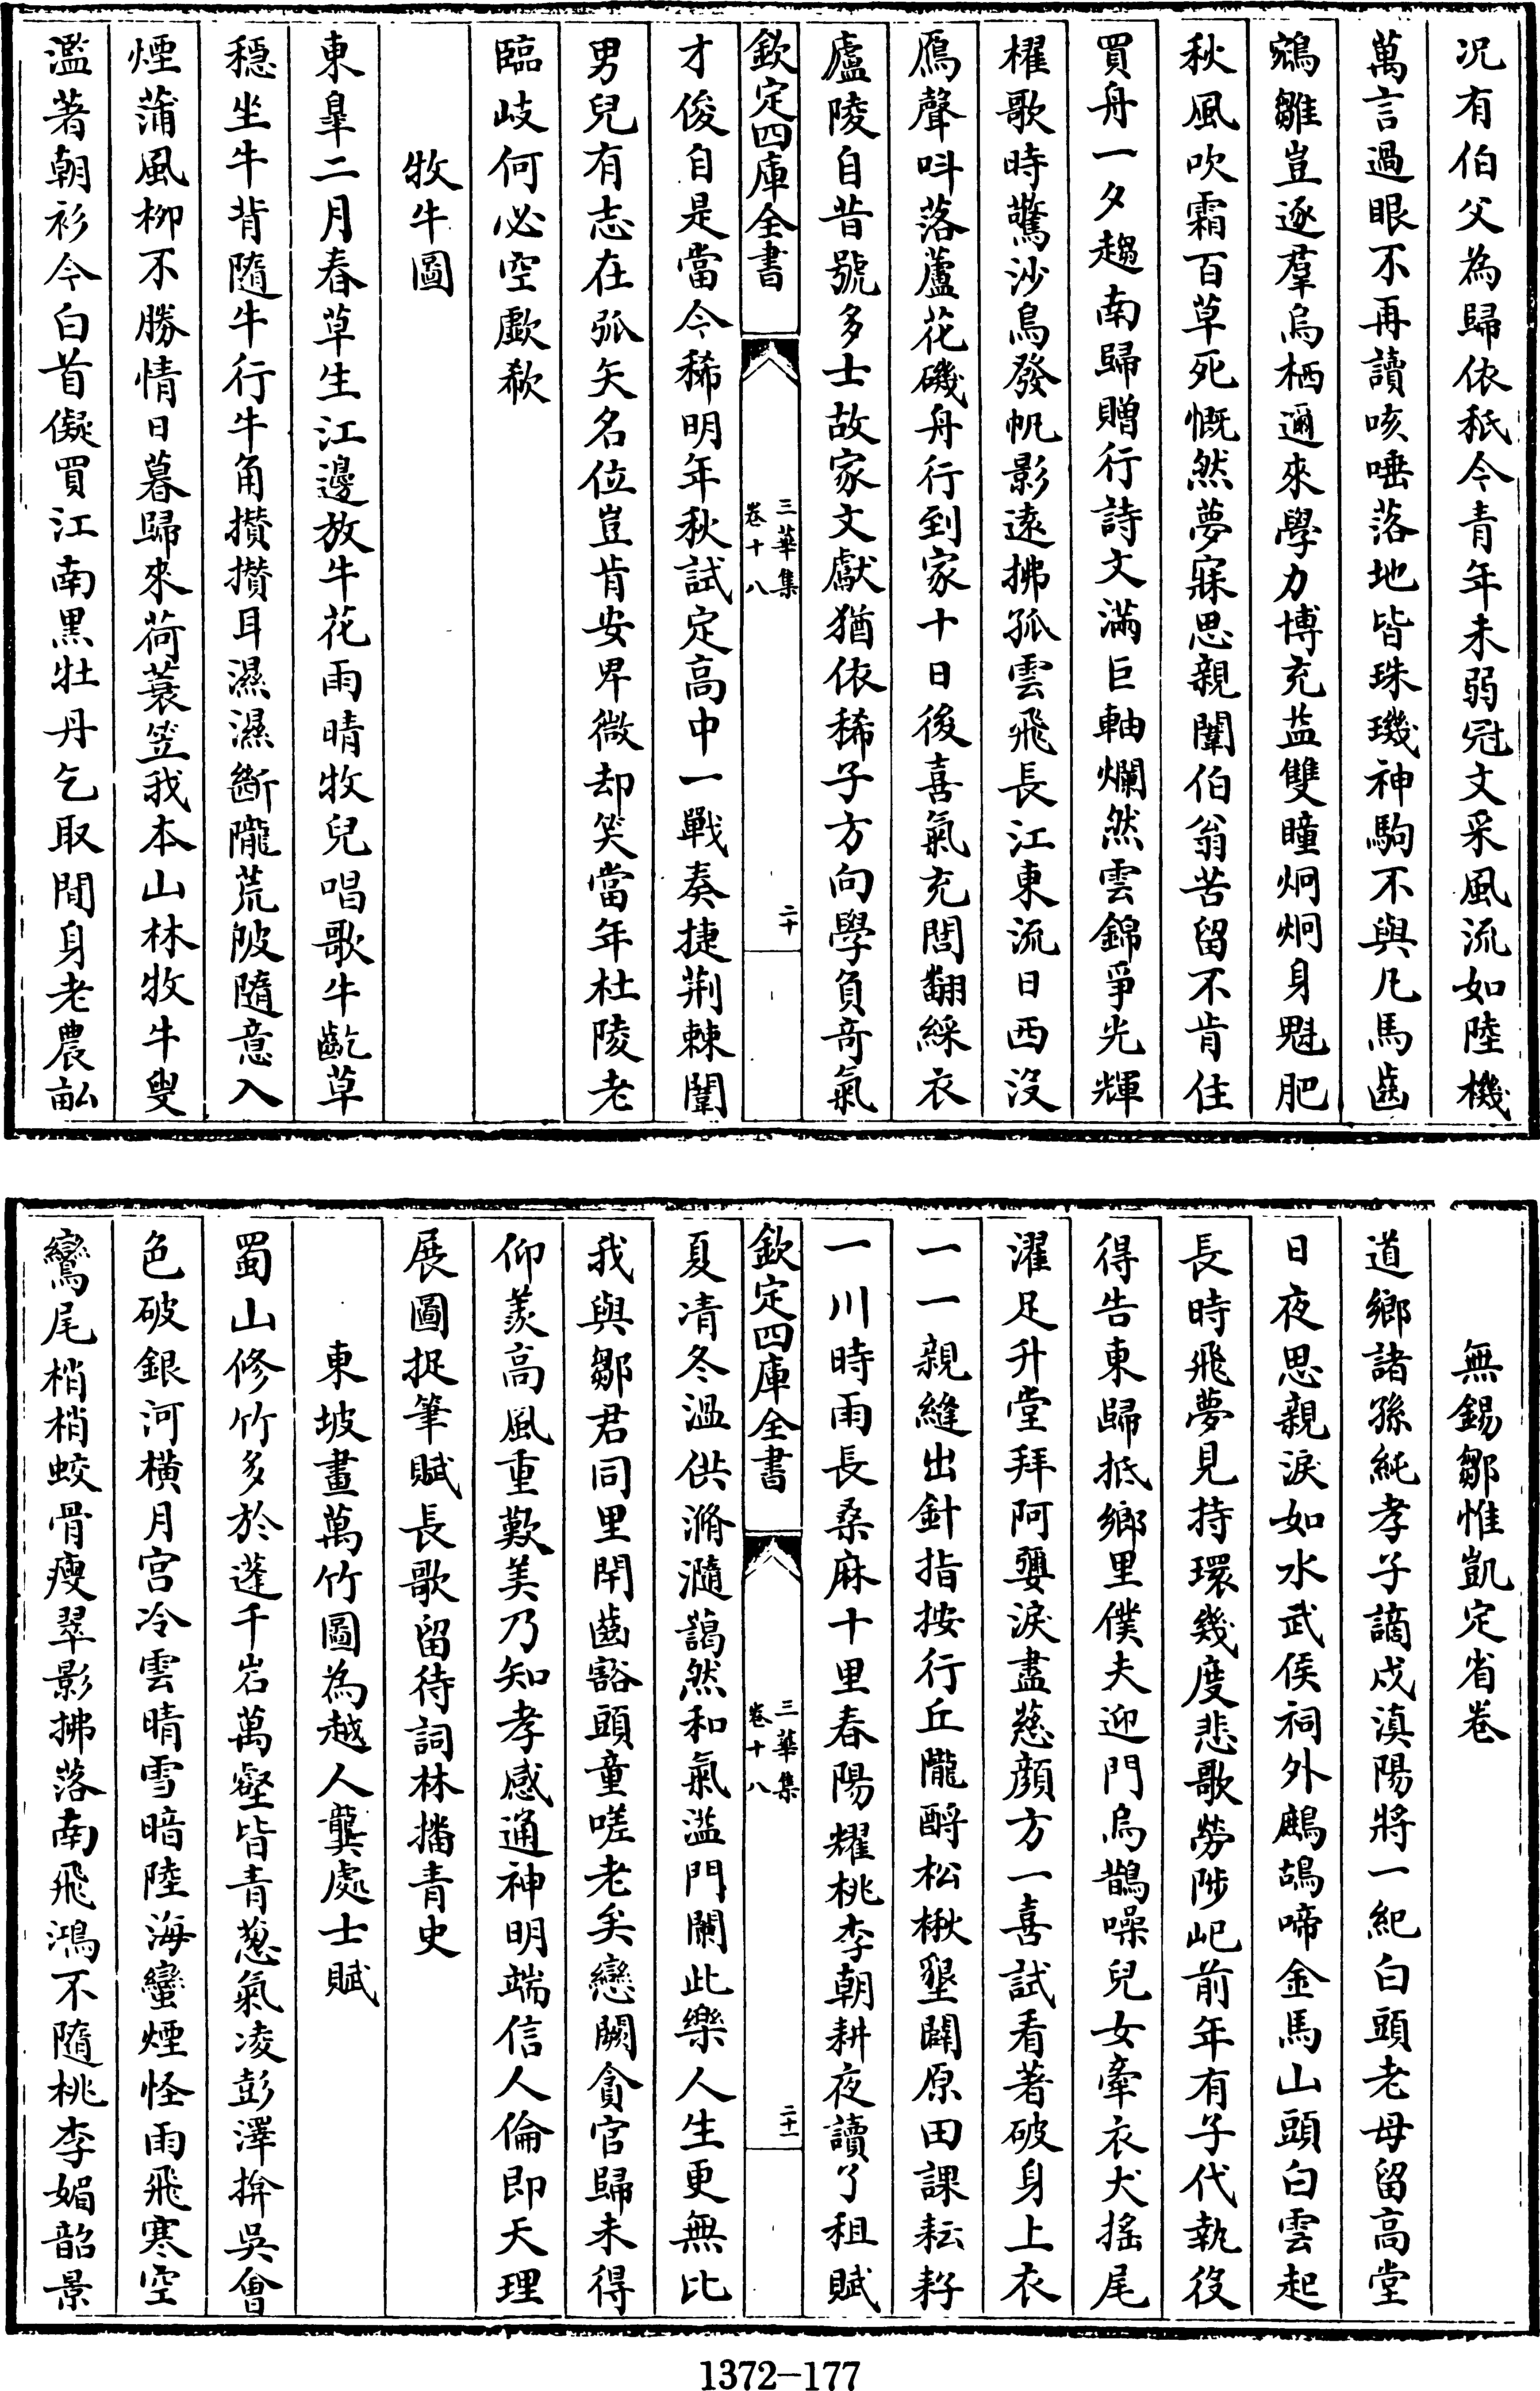 况有伯父為歸依秖今青年未弱冠文采風流如陸機
萬言過眼不再讀咳唾落地皆珠璣神駒不與凡馬齒
鵷雛豈逐羣烏栖邇來學力博充益雙瞳炯炯身魁肥
秋風吹霜百草死慨然夢寐思親闈伯翁苦留不肯住
買舟一夕趨南歸贈行詩文滿巨軸爛然雲錦爭光輝
櫂歌時驚沙鳥發帆影遠拂孤雲飛長江東流日西沒
鴈聲呌落蘆花磯舟行到家十日後喜氣充閭翻綵衣
廬陵自昔號多士故家文獻猶依稀子方向學負奇氣
欽定四庫全書
三華集
卷十八
二十
才俊自是當今稀明年秋試定高中一戰奏捷荆棘闈
男兒有志在弧矢名位豈肯安卑微却笑當年杜陵老
臨岐何必空歔欷
牧牛圖
東臯二月春草生江邊放牛花雨晴牧兒唱歌牛齕草
穩坐牛背隨牛行牛角攢攢耳濕濕斷隴荒陂隨意入
煙蒲風柳不勝情日暮歸來荷蓑笠我本山林牧牛叟
濫著朝衫今白首儗買江南黑牡丹乞取閒身老農畝
無錫鄒惟凱定省卷
道鄉諸孫純孝子謫戍滇陽將一紀白頭老母留高堂
日夜思親淚如水武侯祠外鷓鴣啼金馬山頭白雲起
長時飛夢見持環幾度悲歌勞陟屺前年有子代執役
得告東歸抵鄉里僕夫迎門烏鵲噪兒女牽衣犬搖尾
濯足升堂拜阿㜷淚盡慈顔方一喜試看著破身上衣
一一親縫出針指按行丘隴酹松楸墾闢原田課耘耔
一川時雨長桑麻十里春陽耀桃李朝耕夜讀了租賦
欽定四庫全書
三華集
卷十八
二十一
夏凊冬温供滫瀡藹然和氣溢門闌此樂人生更無比
我與鄒君同里閈齒豁頭童嗟老矣戀闕貪官歸未得
仰羨高風重歎美乃知孝感通神明端信人倫即天理
展圖捉筆賦長歌留待詞林播青史
東坡畫萬竹圖為越人龔處士賦
蜀山修竹多於蓬千岩萬壑皆青蔥氣凌彭澤揜吳會
色破銀河橫月宫冷雲晴雪暗陸海蠻煙怪雨飛寒空
鸞尾梢梢蛟骨瘦翠影拂落南飛鴻不隨桃李媚韶景
1372-177